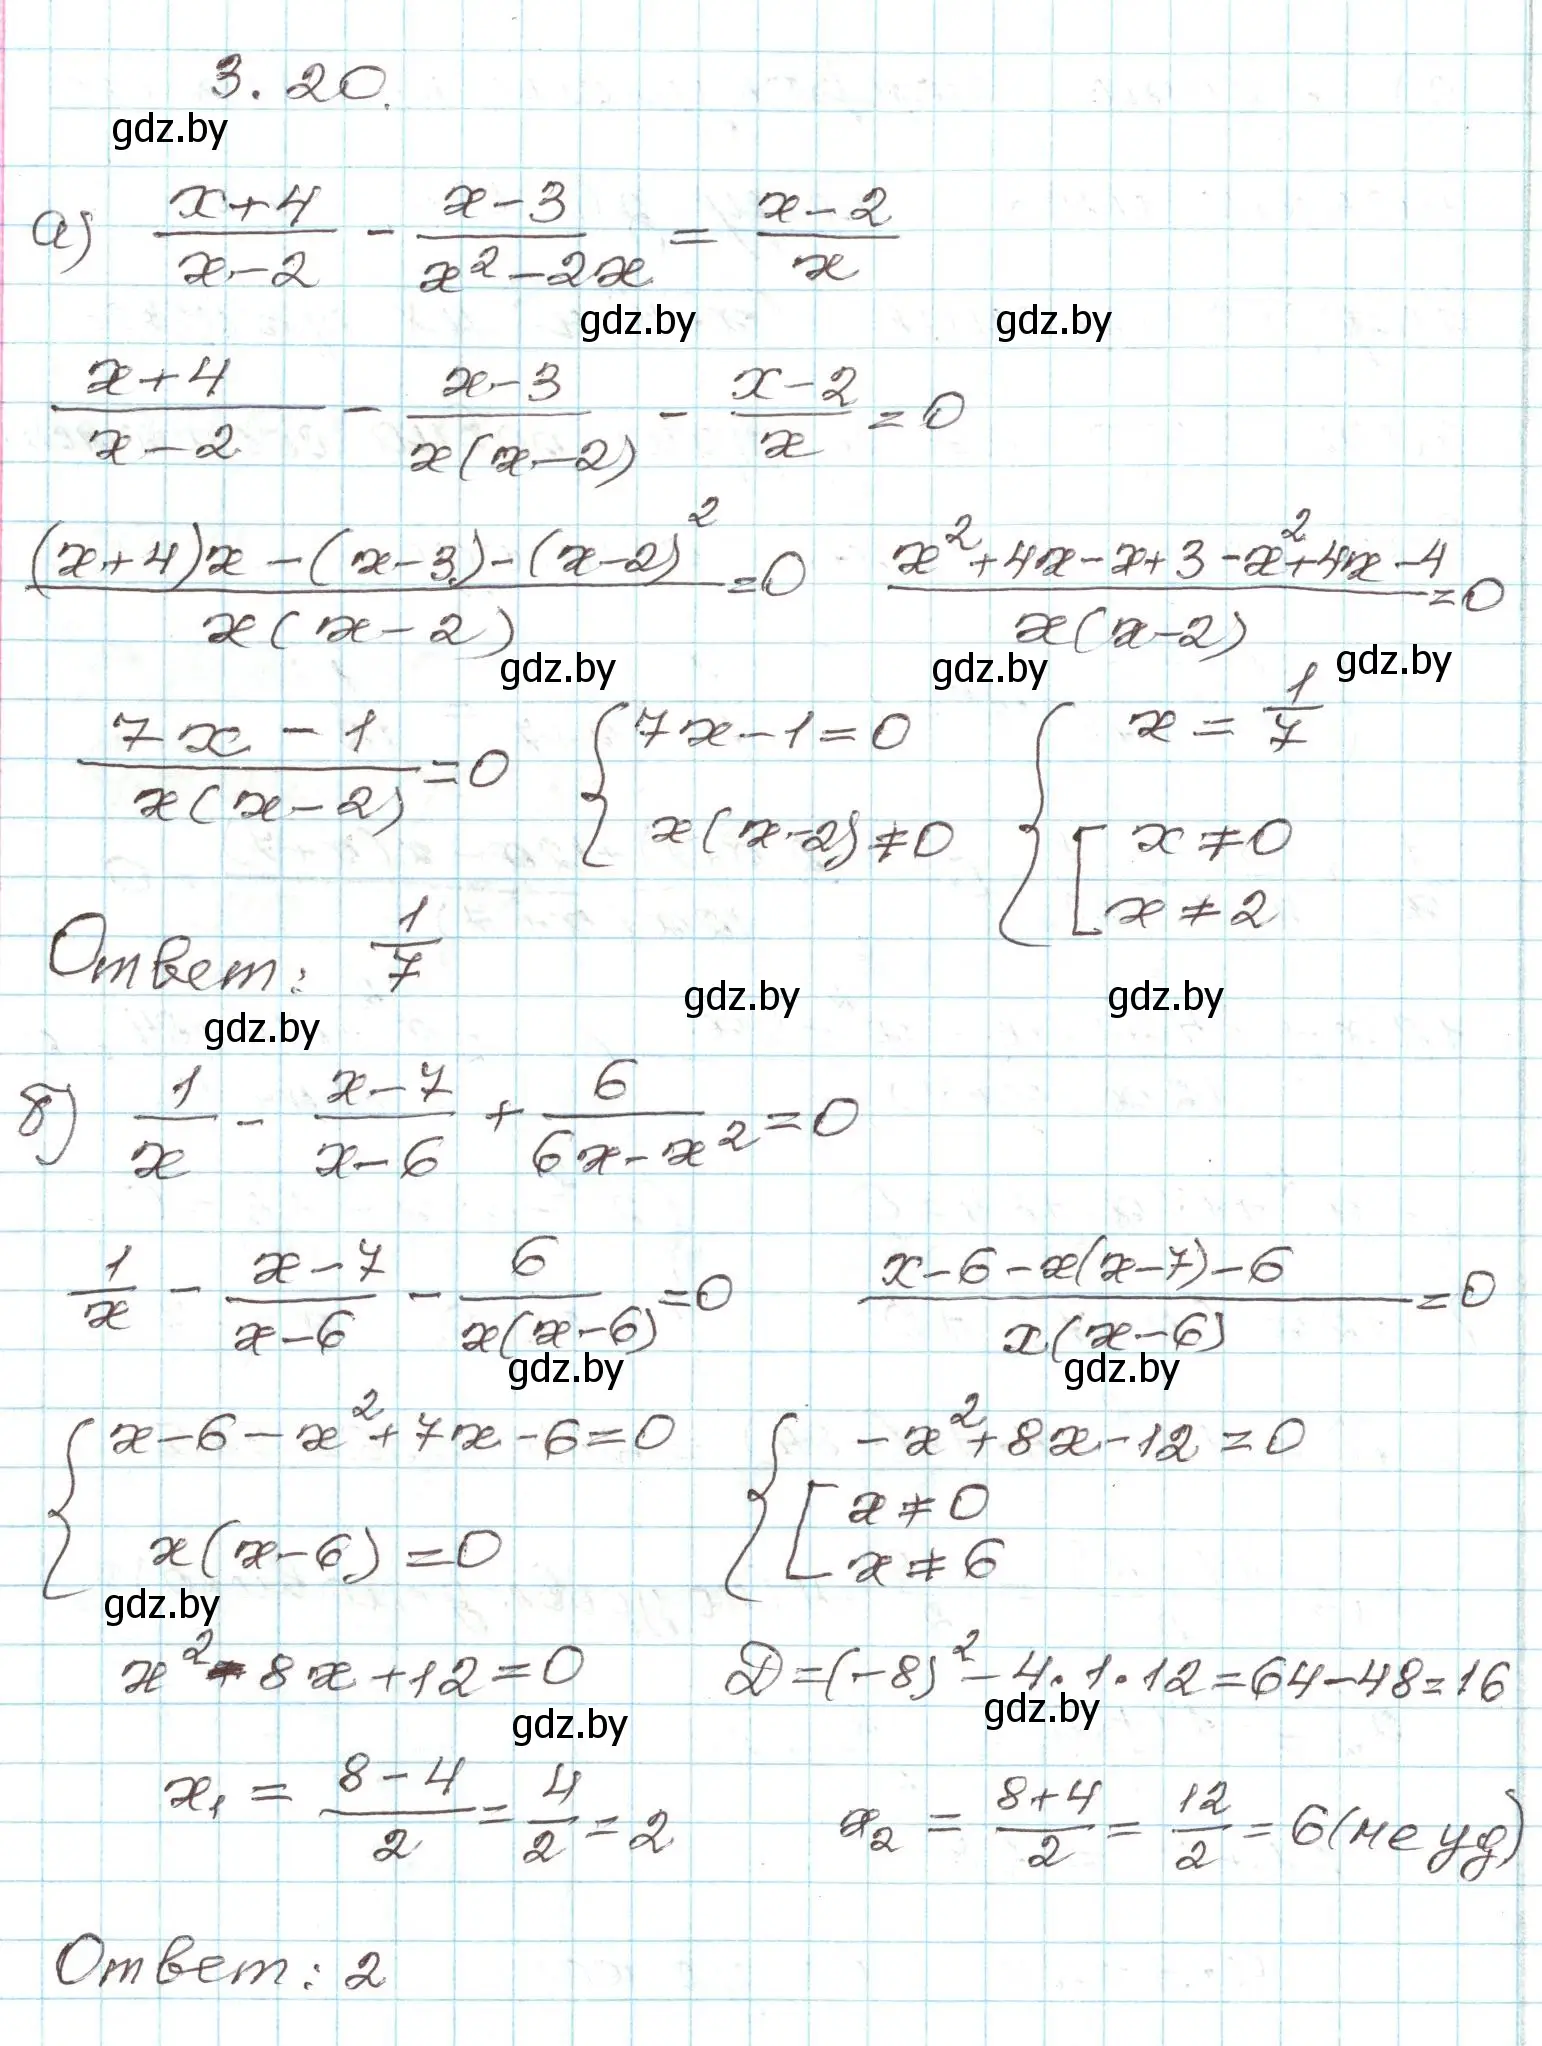 3.20.
gdz.by
а) (x+4)/(x-2) - (x-3)/(x²-2x) = (x-2)/x
gdz.by gdz.by
(x+4)/(x-2) - (x-3)/(x(x-2)) - (x-2)/x = 0
((x+4)x-(x-3)-(x-2)²)/(x(x-2)) = 0 (x²+4x-x+3-x²+4x-4)/(x(x-2)) = 0
gdz.by gdz.by gdz.by
(7x-1)/(x(x-2)) = 0 { 7x-1=0 x(x-2)≠0 { x = 1/7 [ x≠0 x≠2
Ответ: 1/7
gdz.by gdz.by gdz.by
б) 1/x - (x-7)/(x-6) + 6/(6x-x²) = 0
1/x - (x-7)/(x-6) - 6/(x(x-6)) = 0 (x-6-x(x-7)-6)/(x(x-6)) = 0
gdz.by gdz.by
{ x-6-x²+7x-6=0 x(x-6)=0 { -x²+8x-12=0 [ x≠0 x≠6
gdz.by
x²-8x+12=0 D=(-8)²-4·1·12=64-48=16
gdz.by gdz.by
x₁ = (8-4)/2 = 4/2 = 2 x₂ = (8+4)/2 = 12/2 = 6 (не уд)
Ответ: 2